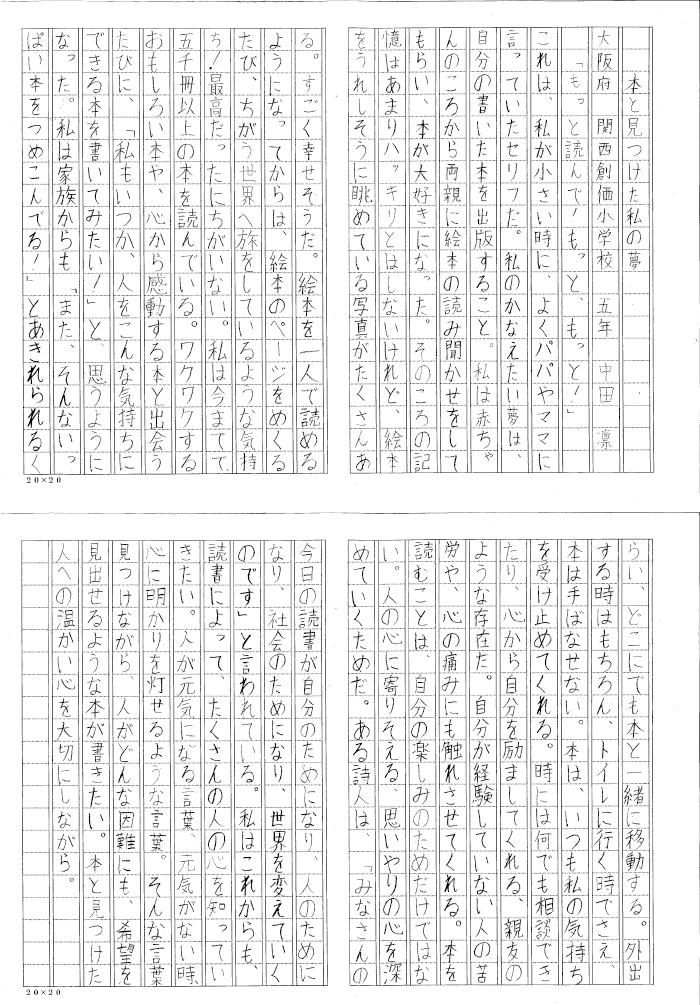 本と見つけた私の夢
大阪府 関西創価小学校 五年 中田 凛
「もっと読んで！もっと、もっと！」
これは、私が小さい時に、よくパパやママに
言っていたセリフだ。私のかなえたい夢は、
自分の書いた本を出版すること。私は赤ちゃ
んのころから両親に絵本の読み聞かせをして
もらい、本が大好きになった。そのころの記
憶はあまりハッキリとはしないけれど、絵本
をうれしそうに眺めている写真がたくさんあ
る。すごく幸せそうだ。絵本を一人で読める
ようになってからは、絵本のページをめくる
たび、ちがう世界へ旅をしているような気持
ち！最高だったにちがいない。私は今までで
五千冊以上の本を読んでいる。ワクワクする
おもしろい本や、心から感動する本と出会う
たびに、「私もいつか、人をこんな気持ちに
できる本を書いてみたい！」と、思うように
なった。私は家族からも「また、そんないっ
ぱい本をつめこんでる！」とあきれられるく
20×20
らい、どこにでも本と一緒に移動する。外出
する時はもちろん、トイレに行く時でさえ、
本は手ばなせない。本は、いつも私の気持ち
を受け止めてくれる。時には何でも相談でき
たり、心から自分を励ましてくれる、親友の
ような存在だ。自分が経験していない人の苦
労や、心の痛みにも触れさせてくれる。本を
読むことは、自分の楽しみのためだけではな
い。人の心に寄りそえる、思いやりの心を深
めていくためだ。ある詩人は、「みなさんの
今日の読書が自分のためになり、人のために
なり、社会のためになり、世界を変えていく
のです」と言われている。私はこれからも、
読書によって、たくさんの人の心を知ってい
きたい。人が元気になる言葉、元気がない時、
心に明かりを灯せるような言葉。そんな言葉を
見つけながら、人がどんな困難にも、希望を
見出せるような本が書きたい。本と見つけた
人への温かい心を大切にしながら。
20×20